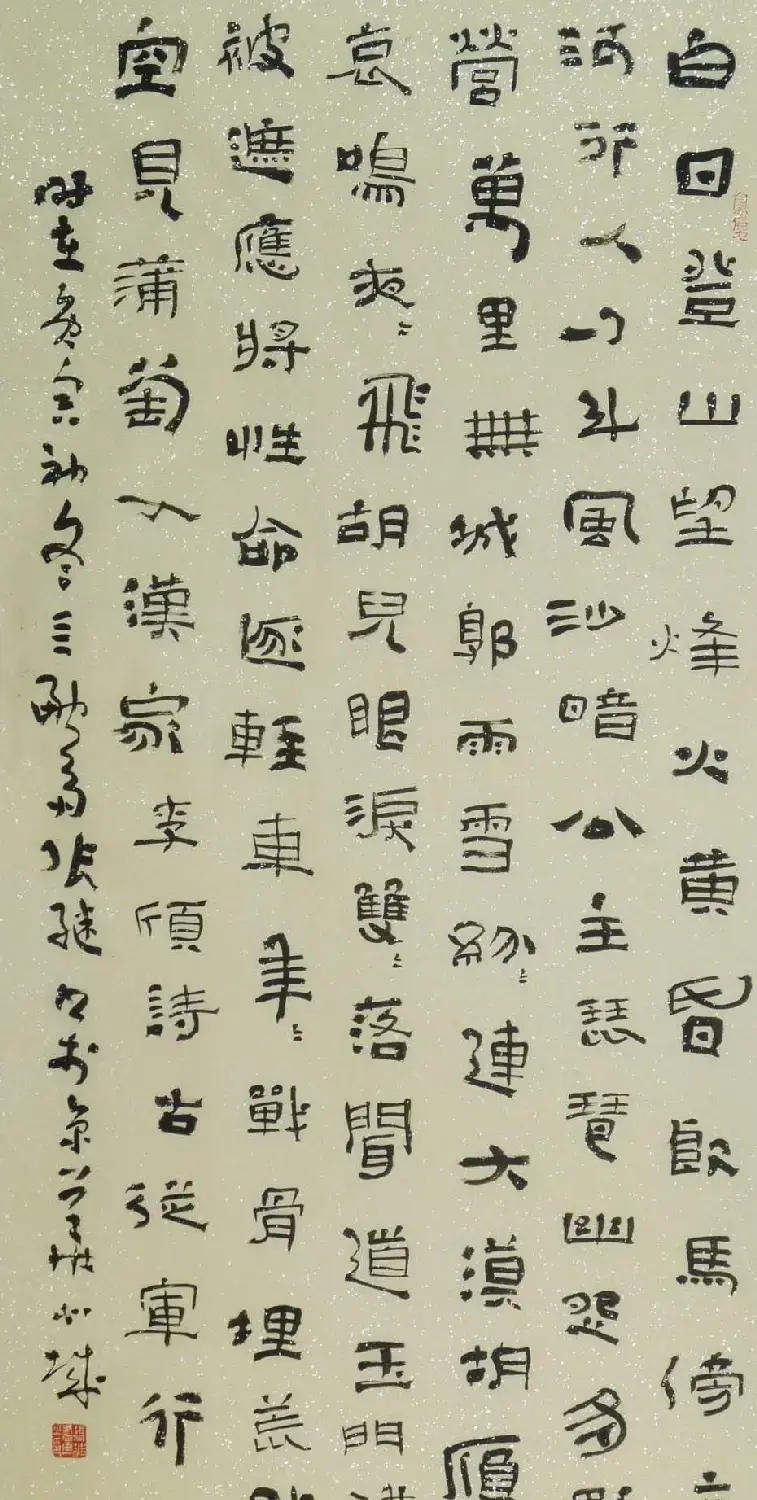 白日登山望烽火黄昏飲馬傍
河行人刁斗風沙暗公主琵琶幽怨多
營萬里無城郭雨雪紛〻連大漠胡雁
哀鳴夜〻飛胡兒眼淚雙〻落聞道玉門
被遮應將性命逐輕車年〻戰骨埋荒
空見蒲萄入漢家李頎詩古從軍行
時在寅初冬三勤齋張继書於京